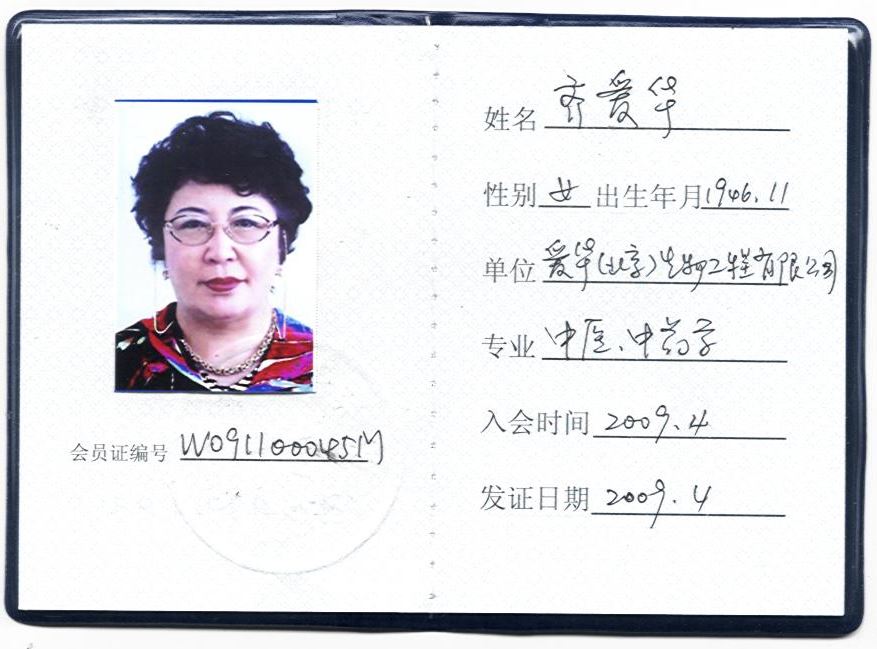 会员证编号 W091100045M
姓名 齐爱华
性别 女 出生年月 1946.11
单位 爱华(北京)生物工程有限公司
专业 中医、中药学
入会时间 2009.4
发证日期 2009.4